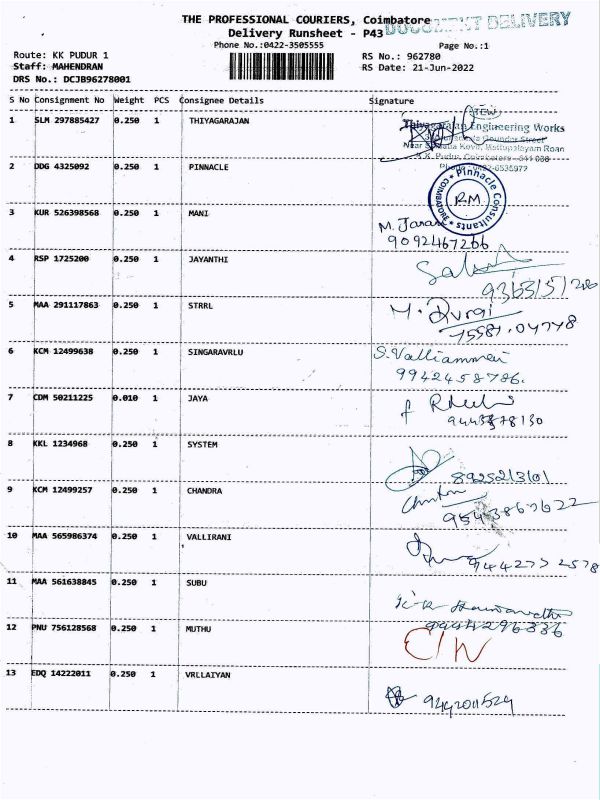 THE PROFESSIONAL COURIERS, Coimbatore
DOCUMENT DELIVERY
Delivery Runsheet - P43
Phone No.:0422-3505555
Page No.:1
Route: KK PUDUR 1
RS No.: 962780
Staff: MAHENDRAN
RS Date: 21-Jun-2022
DRS No.: DCJB96278001
S No Consignment No Weight PCS Consignee Details Signature
1 SLM 297885427 0.250 1 THIYAGARAJAN
Thiyagarajan Engineering Works
2 DDG 4325092 0.250 1 PINNACLE
Pinnacle Consultants
COIMBATORE
RM
3 KUR 526398568 0.250 1 MANI
9092467266
4 RSP 1725200 0.250 1 JAYANTHI
5 MAA 291117863 0.250 1 STRRL
6 KCM 12499638 0.250 1 SINGARAVRLU
S. Valliammai
9942458786.
7 CDM 50211225 0.010 1 JAYA
8 KKL 1234968 0.250 1 SYSTEM
9 KCM 12499257 0.250 1 CHANDRA
9543867622
10 MAA 565986374 0.250 1 VALLIRANI
9442772578
11 MAA 561638845 0.250 1 SUBU
12 PNU 756128568 0.250 1 MUTHU
13 EDQ 14222011 0.250 1 VRLLAIYAN